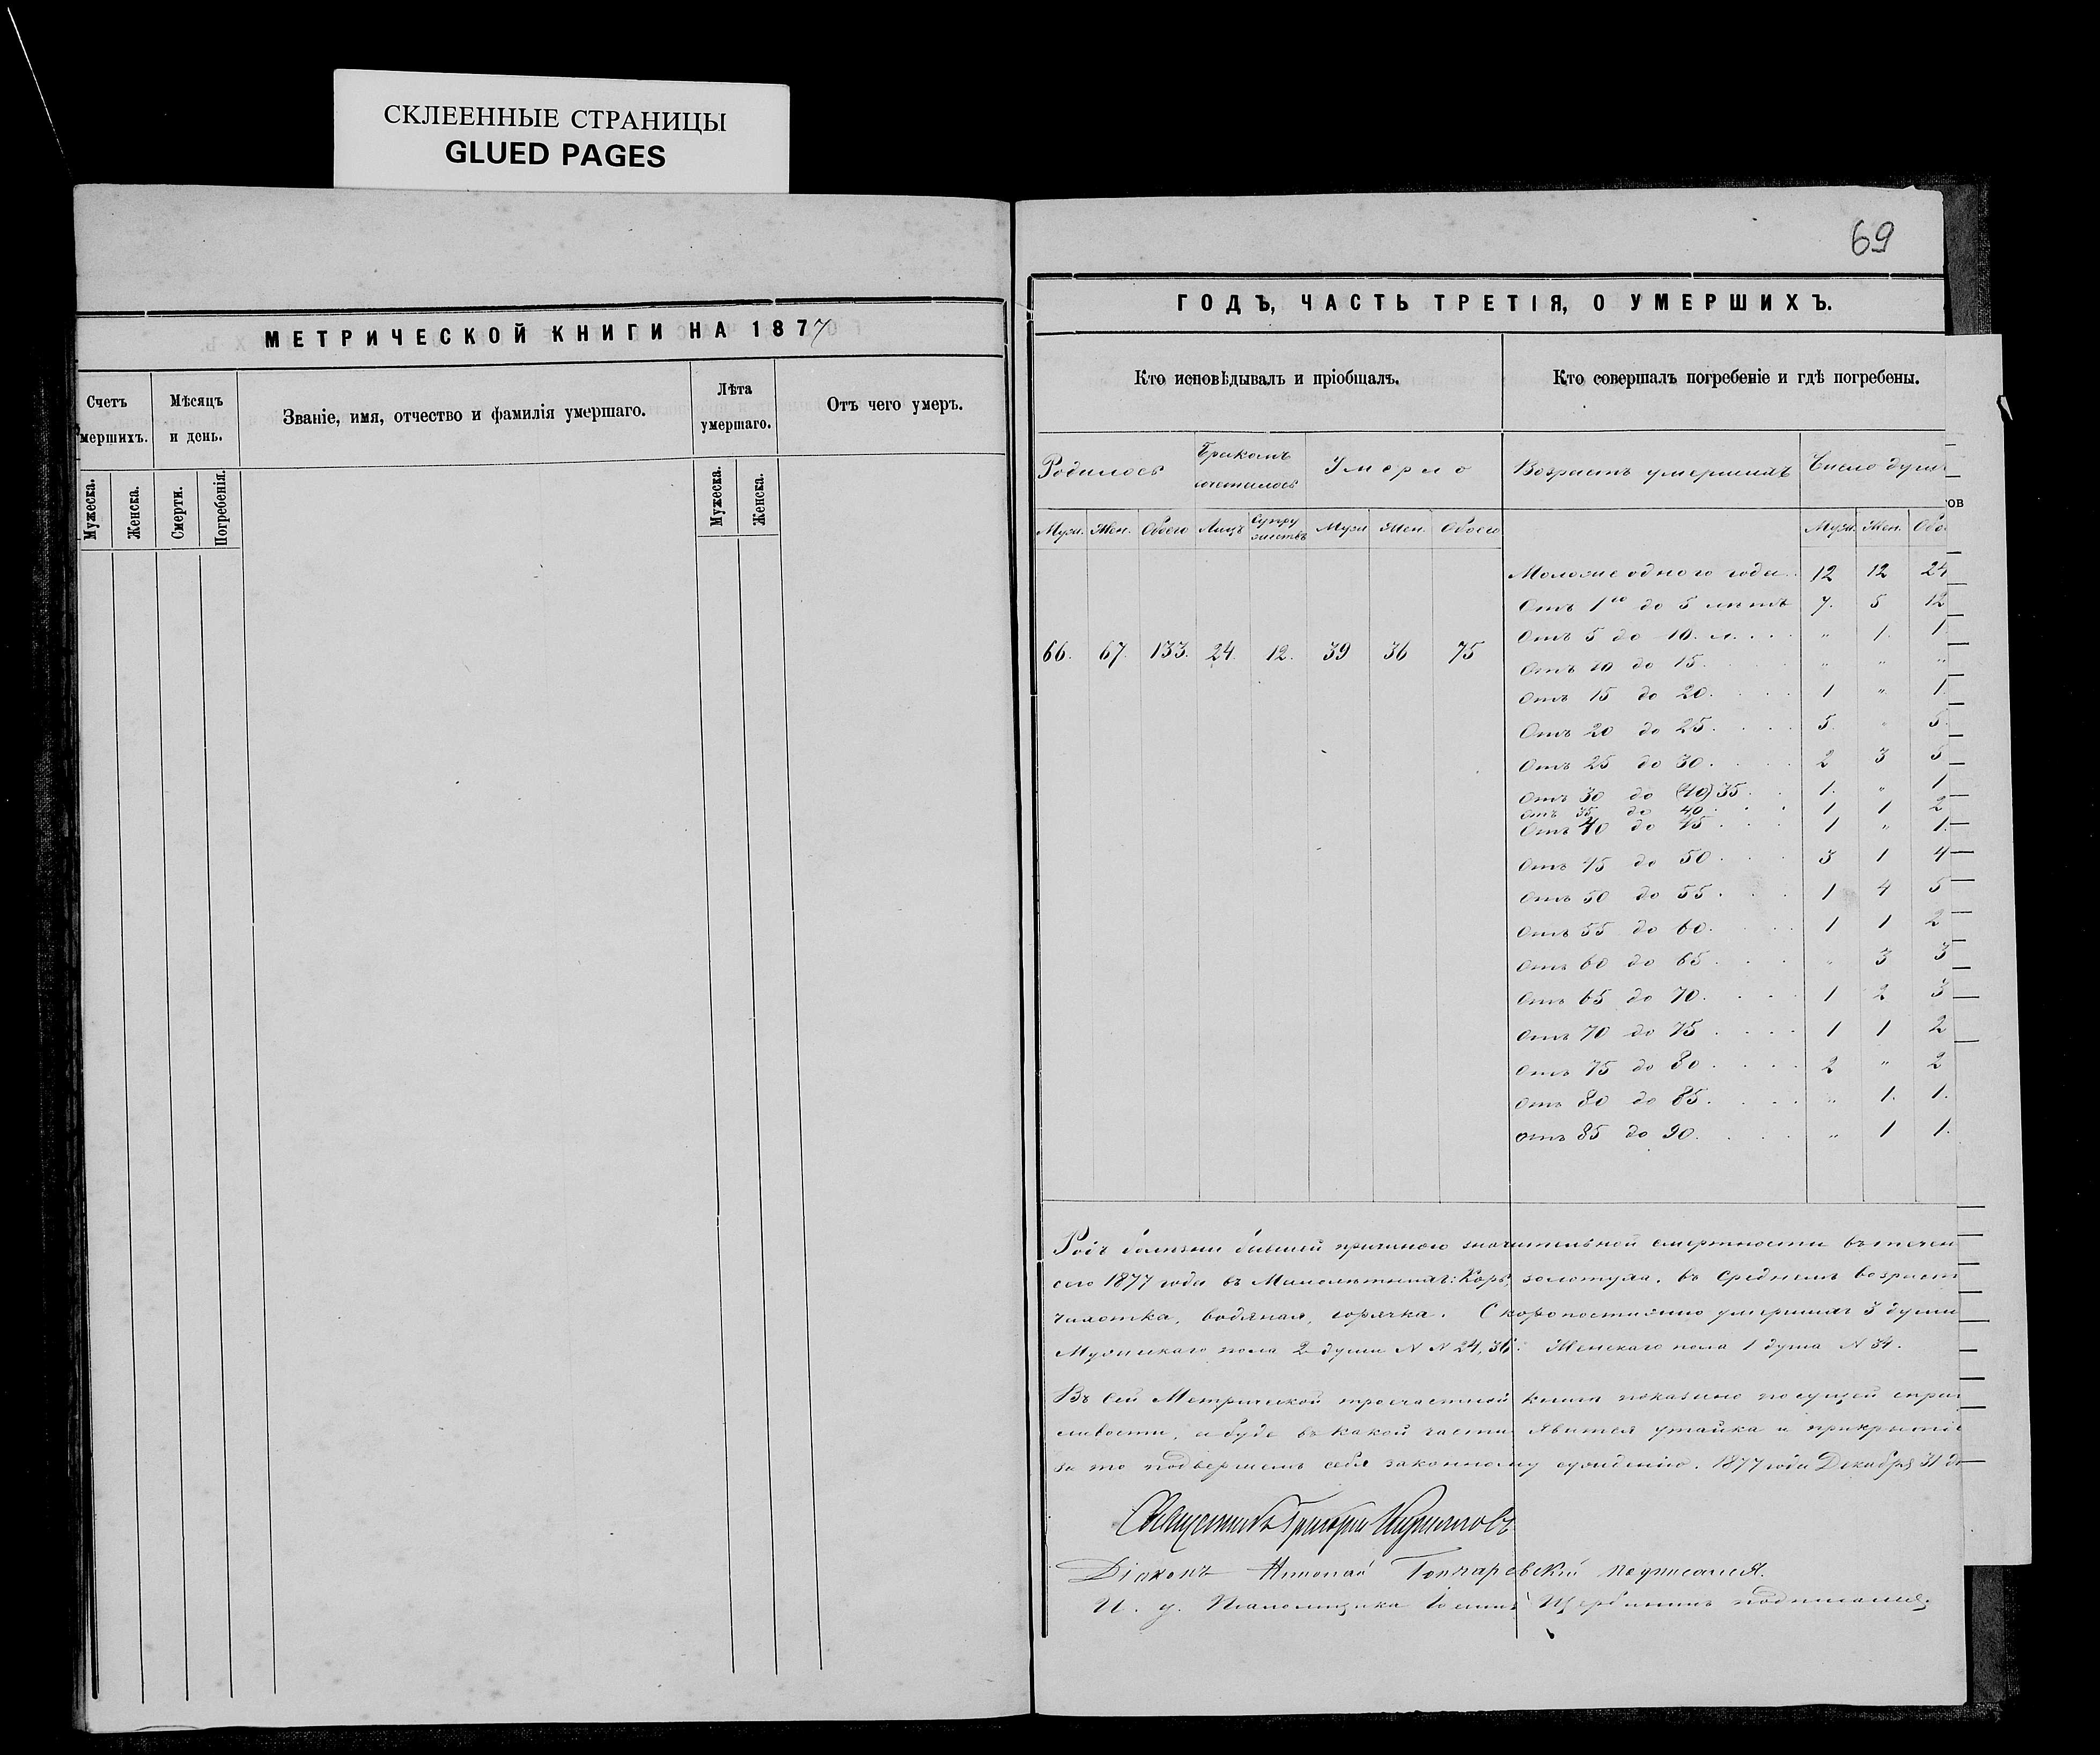 СКЛЕЕННЫЕ СТРАНИЦЫ
GLUED PAGES
МЕТРИЧЕСКОЙ КНИГИ НА 1877
Счетъ умершихъ.
Мѣсяцъ и день.
Званіе, имя, отчество и фамилія умершаго.
Лѣта умершаго.
Отъ чего умеръ.
Мужеска. Женска. Смерти. Погребенія. Мужеска. Женска.
69
ГОДЪ, ЧАСТЬ ТРЕТІЯ, О УМЕРШИХЪ.
Кто исповѣдывалъ и пріобщалъ. Кто совершалъ погребеніе и гдѣ погребены.
Родилось Бракомъ сочеталось Умерло Возрастъ умершихъ Число душъ
тов
Муж. Жен. Обоего Лицъ Супружествъ Муж Жен. Обоего Муж. Жен. Обо.
66. 67. 133. 24. 12. 39 36 75
Моложе одного года 12 12 24
Отъ 1го до 5 лѣтъ 7. 5 12
Отъ 5 до 10. л. . . . " 1. 1
Отъ 10 до 15. " " "
Отъ 15 до 20. 1 " 1.
Отъ 20 до 25. 5. " 5.
Отъ 25 до 30. 2 3 5
Отъ 30 до (40) 35. 1. " 1
отъ 35 до 40. 1 1 2
Отъ 40 до 45 1 " 1.
Отъ 45 до 50. 3 1 4
Отъ 50 до 55. 1 4 5
Отъ 55 до 60. 1 1 2
Отъ 60 до 65. " 3 3
Отъ 65 до 70. 1 2 3
Отъ 70 до 75 1 1 2
Отъ 75 до 80. 2 " 2
Отъ 80 до 85. " 1. 1.
Отъ 85 до 90. " 1 1.
Родъ болѣзни бывшей причиною значительной смертности въ течен
сего 1877 года въ Малолѣтнихъ: Корь, золотуха. въ Среднемъ возраст
чахотка, водяная, горячка. Скоропостижно умершихъ 3 души
Мужескаго пола 2 души N N 24, 36: Женскаго пола 1 душа N 34.
Въ сей Метрической троечастной книги показано по сущей спра
ливости, а буде въ какой части явится утайка и прикрытіе
за то подвержемъ себя законному сужденію. 1877 года Декабря 31 дн
Священникъ Григорій
Діаконъ Николай Гончаревскій подписался.
И. д. Псаломщика Іоаннъ Щербининъ подписался